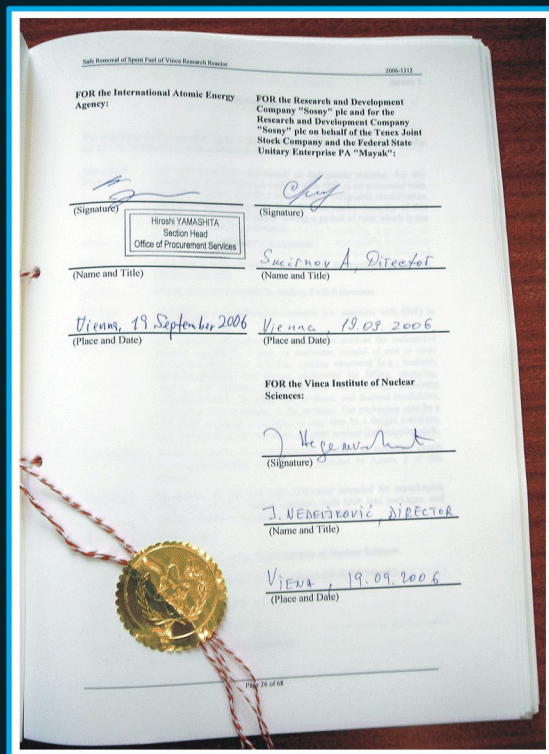 Safe Removal of Spent Fuel of Vinca Research Reactor
2006-1312
FOR the International Atomic Energy
Agency:
(Signature)
Hiroshi YAMASHITA
Section Head
Office of Procurement Services
(Name and Title)
Vienna, 19 September 2006
(Place and Date)
FOR the Research and Development
Company "Sosny" plc and for the
Research and Development Company
"Sosny" plc on behalf of the Tenex Joint
Stock Company and the Federal State
Unitary Enterprise PA "Mayak":
(Signature)
Smirnov A, Director
(Name and Title)
Vienna, 19.09.2006
(Place and Date)
FOR the Vinca Institute of Nuclear
Sciences:
(Signature)
J. NEDELJKOVIĆ, DIRECTOR
(Name and Title)
VIENA, 19.09.2006
(Place and Date)
Page 26 of 68